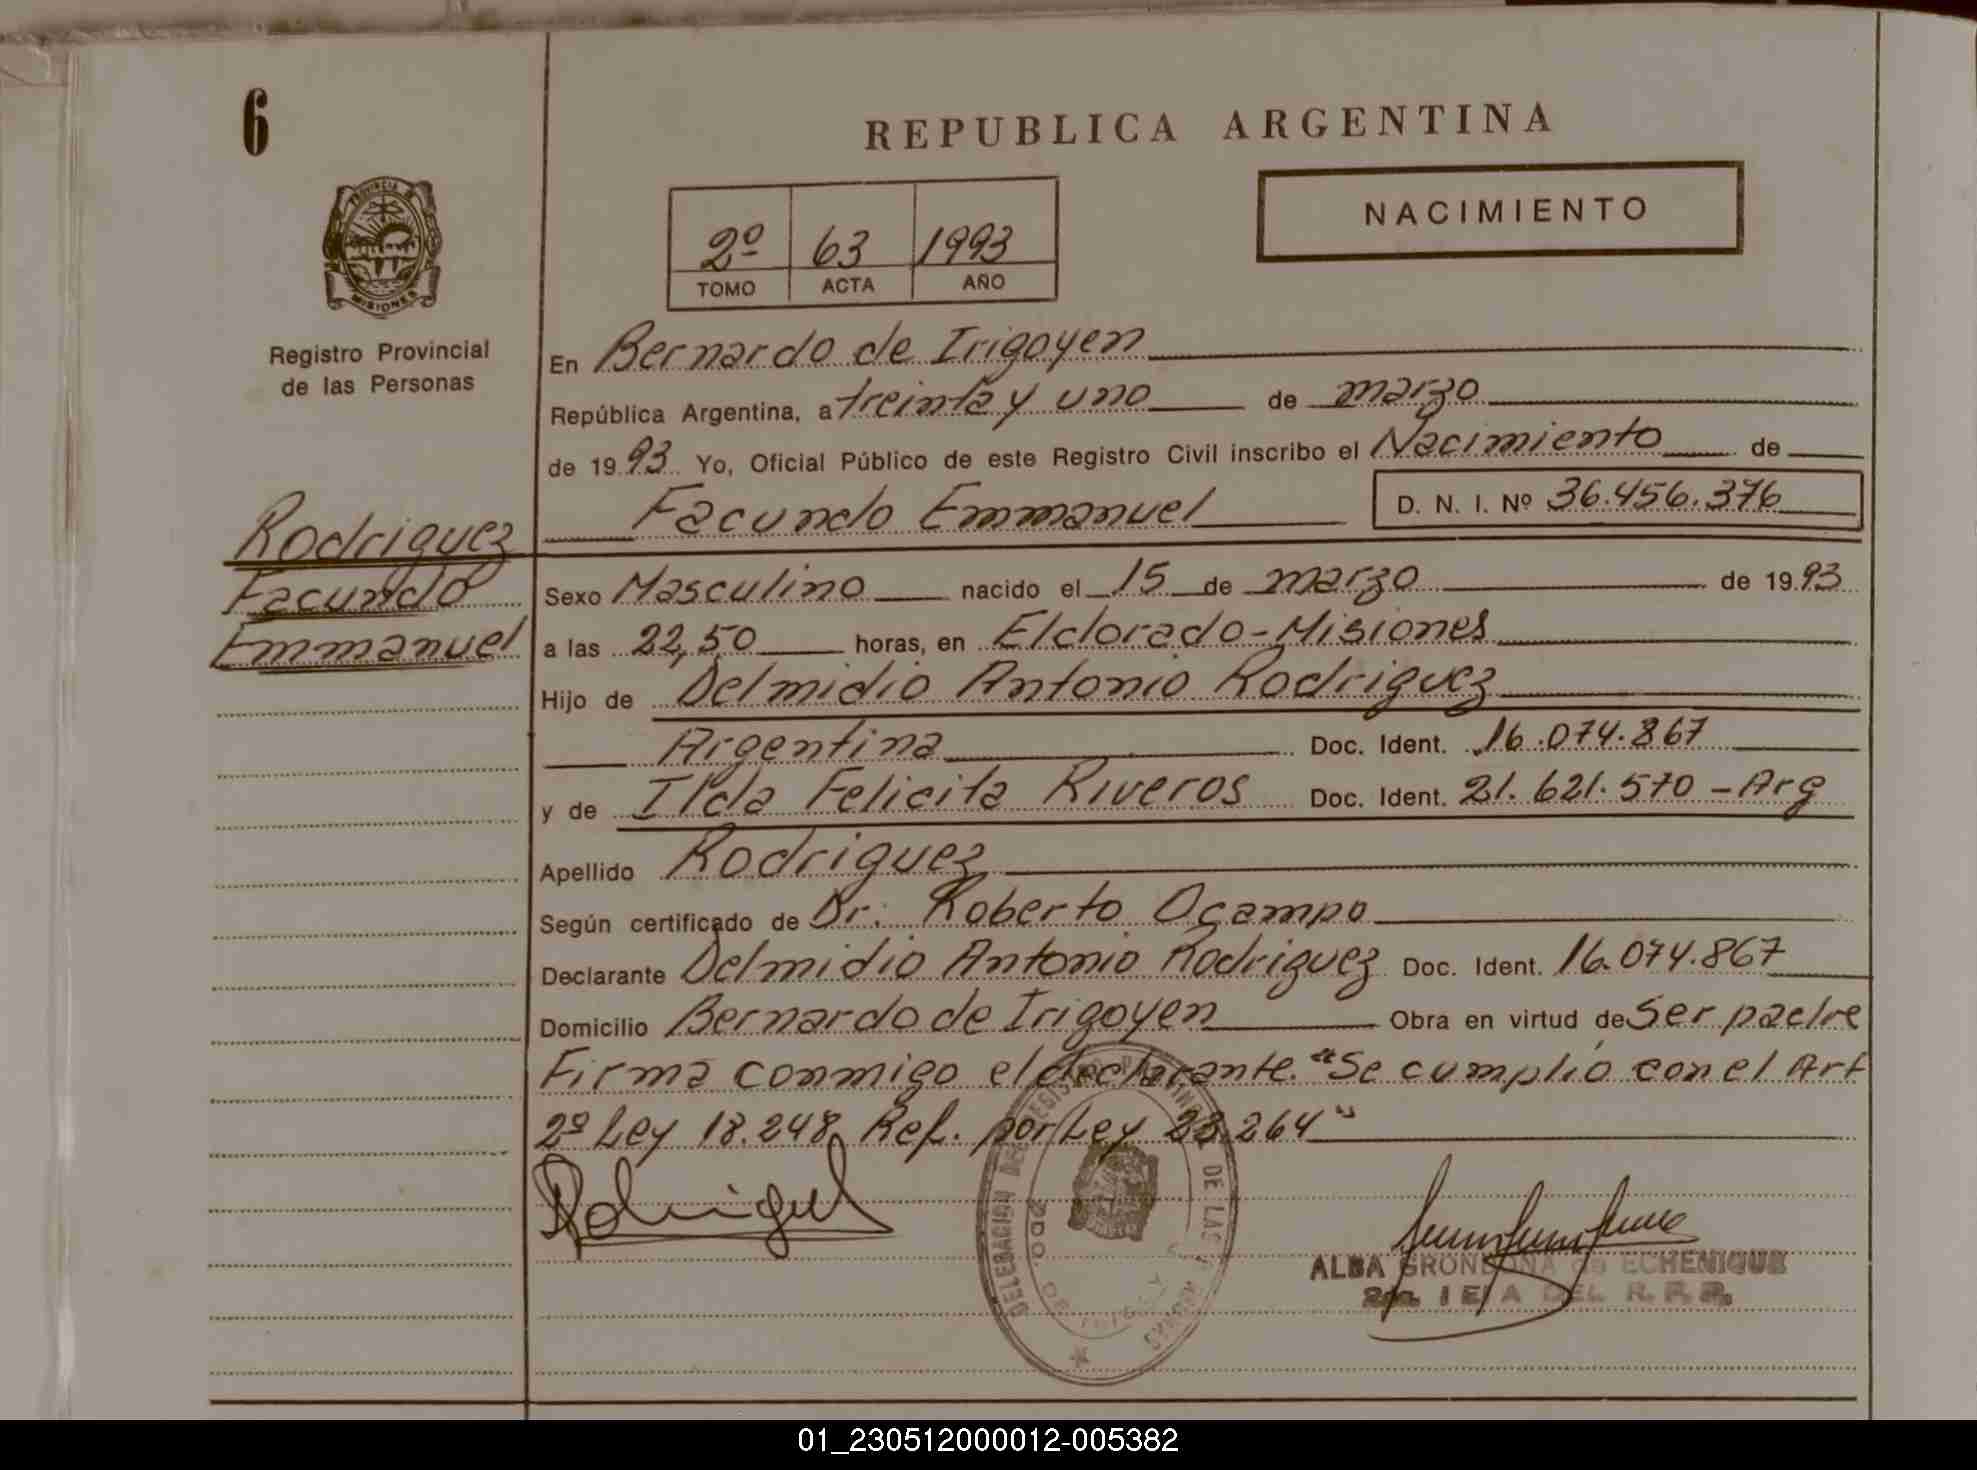 6
REPUBLICA ARGENTINA
PROVINCIA DE
MISIONES
Registro Provincial
de las Personas
NACIMIENTO
2º 63 1993
TOMO ACTA AÑO
En Bernardo de Irigoyen
República Argentina, a treinta y uno de marzo
de 1993 Yo, Oficial Público de este Registro Civil inscribo el Nacimiento de
Facundo Emmanuel D. N. I. Nº 36.456.376
Rodriguez
Facundo
Emmanuel
Sexo Masculino nacido el 15 de marzo de 1993
a las 22,50 horas, en Eldorado-Misiones
Hijo de Delmidio Antonio Rodriguez
Argentina Doc. Ident. 16.074.867
y de Ilda Felicita Riveros Doc. Ident. 21.621.570 - Arg
Apellido Rodriguez
Según certificado de Dr. Roberto Ocampo
Declarante Delmidio Antonio Rodriguez Doc. Ident. 16.074.867
Domicilio Bernardo de Irigoyen Obra en virtud de ser padre
Firma conmigo el declarante. "Se cumplió con el Art
2º Ley 18.248 Ref. por Ley 23.264"
Rodriguez
DELEGACION DEL REGISTRO PROVINCIAL DE LAS
BDO. DE
ALBA GRONDONA de ECHENIQUE
DEL R. P. P.
01_230512000012-005382